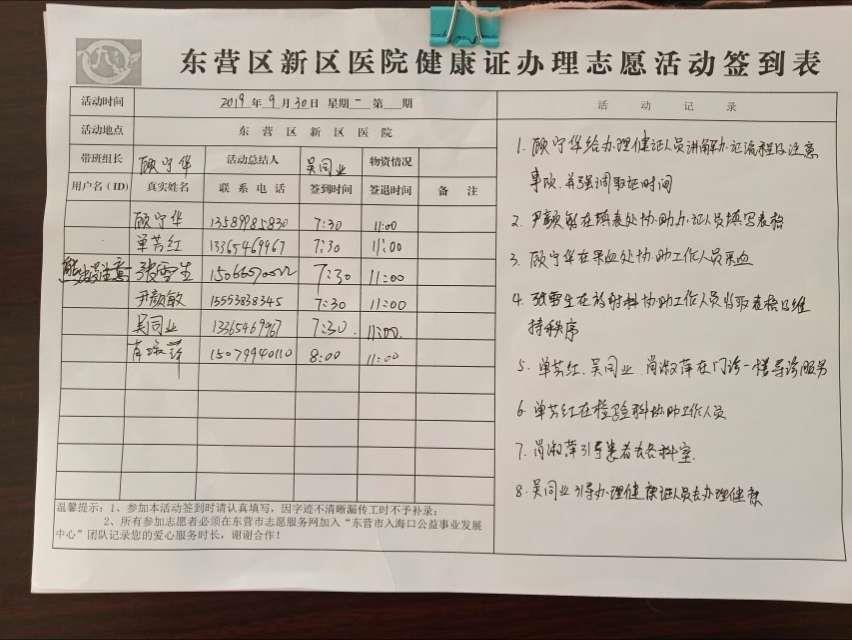 东营区新区医院健康证办理志愿活动签到表
活动时间 2019年9月30日 星期一 第 期
活动地点 东营区新区医院
带班组长 顾宁华 活动总结人 吴同业 物资情况
用户名(ID) 真实姓名 联系电话 签到时间 签退时间 备注
顾宁华 13589985830 7:30 11:00
单芳红 13365469967 7:30 11:00
张雪生 7:30 11:00
尹颜敏 15553838345 7:30 11:00
吴同业 13365469967 7:30 11:00
肖淑萍 15079940110 8:00 11:00
温馨提示:1、参加本活动签到时请认真填写,因字迹不清晰漏传工时不予补录;
2、所有参加志愿者必须在东营市志愿服务网加入“东营市入海口公益事业发展
中心”团队记录您的爱心服务时长,谢谢合作!
活动记录
1. 顾宁华给办理健证人员讲解办证流程及注意
事项,并强调取证时间
2. 尹颜敏在填表处协助办证人员填写表格
3. 顾宁华在采血处协助工作人员采血
4. 张雪生在放射科协助工作人员收取表格及维
持秩序
5. 单芳红、吴同业、肖淑萍在门诊一楼导诊服务
6. 单芳红在检验科协助工作人员
7. 肖淑萍引导患者去各科室.
8. 吴同业引导办理健康证人员去办理健康